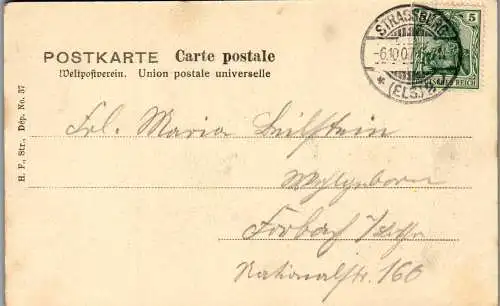 POSTKARTE Carte postale
Weltpostverein. Union postale universelle
H. F., Str., Dép. No. 37
STRASSBURG
5
(ELS.)
REICH
Frl. Maria Beilstein
Forbach
Nationalstr. 160